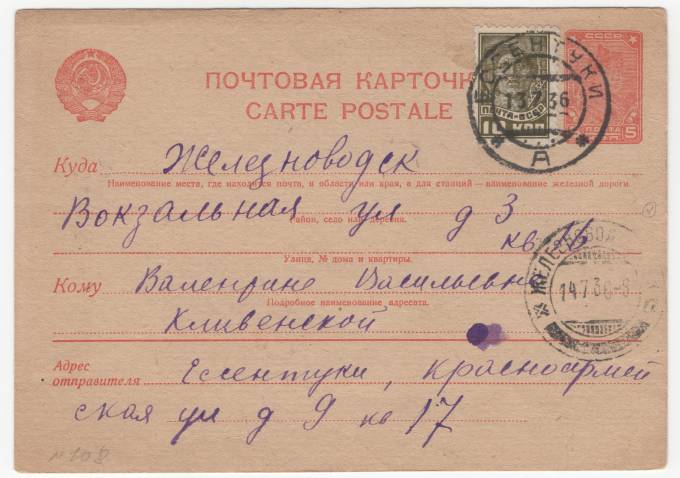 ПОЧТОВАЯ КАРТОЧК
CARTE POSTALE
СССР
ПОЧТА 5
10 КОП
ПОЧТА
ЕССЕНТУКИ
13.7.36
А
Куда Железноводск
Наименование места, где находится почта, и области или края, а для станций — наименование железной дороги
Вокзальная ул д 3
Район, село или деревня.
кв
Улица, № дома и квартиры.
ЖЕЛЕЗНОВОД
14.7.36-8
Кому Валентине Васильевне
Подробное наименование адресата.
Хливенской
Адрес отправителя Ессентуки, Красноармей
ская ул д 9 кв 17
№108